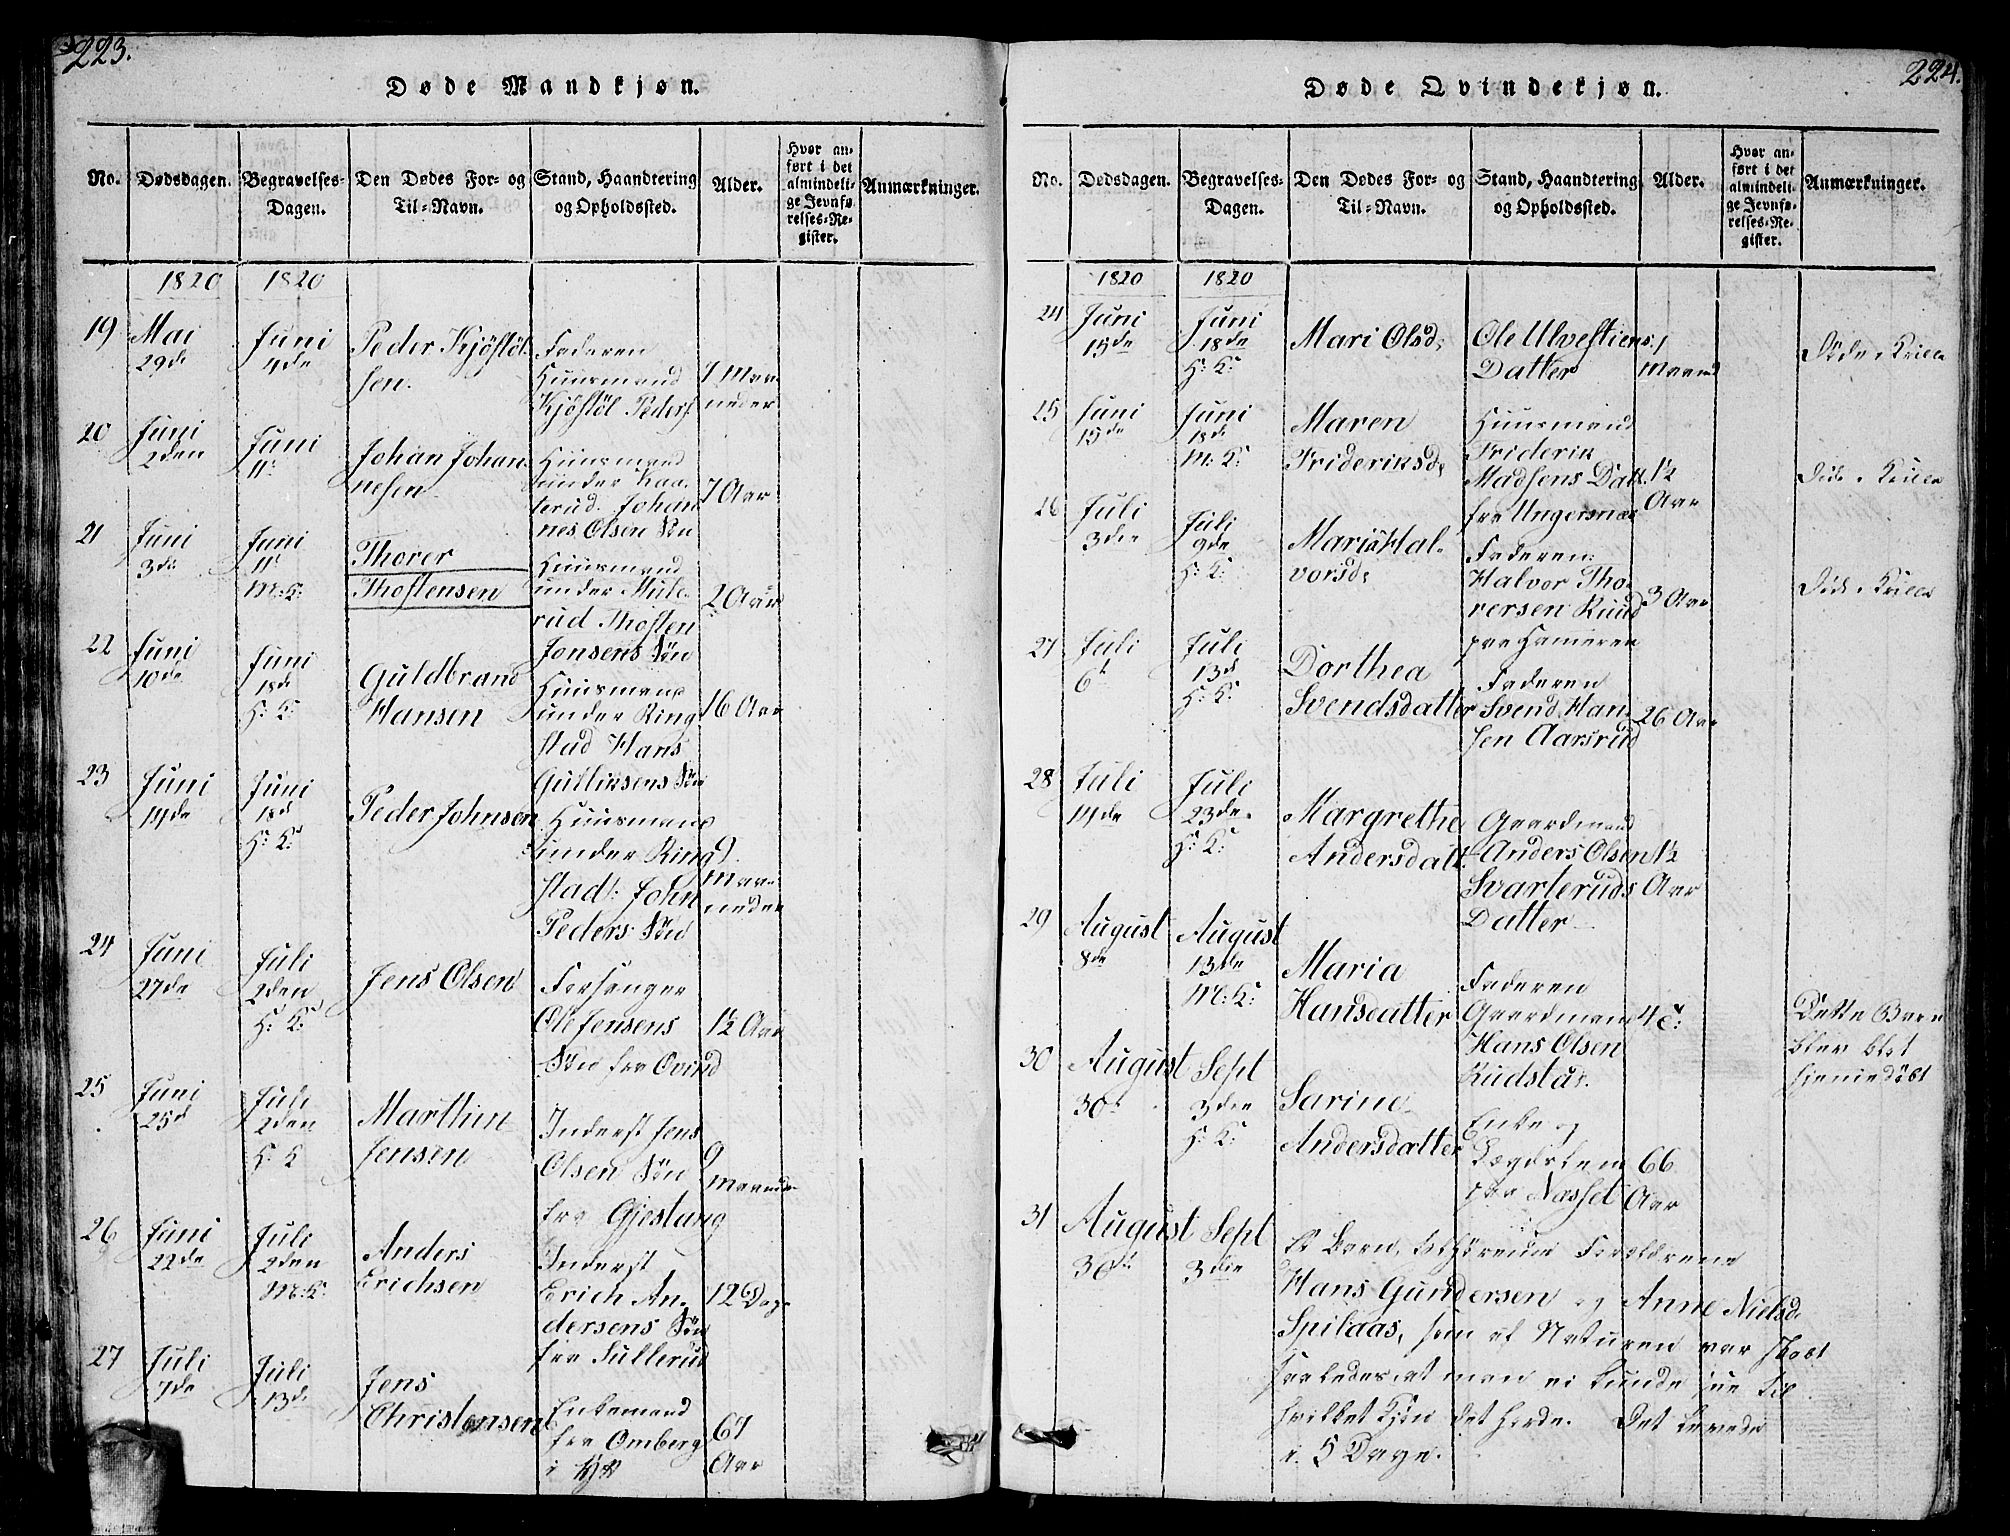 223.
Døde Mandkjøn.
No. Dødsdagen. Begravelses-Dagen. Den Dødes For- og Til-Navn. Stand, Haandtering og Opholdssted. Alder. Hvor anført i det almindelige Jevnførelses-Register. Anmærkninger.
1820 1820
19 Mai 29de Juni 4de Peder Kjøstøl
sen. Faderen
Huusmand
Kjøstøl Peders 7 Maaneder
20 Juni 2den Juni 11. Johan Johan
nesen Huusmand
under
Johan
nes Olsen Søn 7 Aar
21 Juni 3die Juni 11t M:K: Thorer
Thostensen Huusmand
under Mule
rud Thosten
Jonsens Søn 2 Aar
22 Juni 10de Juni 18de H: K: Guldbrand
Hansen Huusmand
under Ring
stad Hans
Gulliksens Søn 16 Aar
23 Juni 14de Juni 18d H: K: Peder Johnsen Huusmand
under Ring
stad: John
Peders Søn 9 Maaneder
24 Juni 27de Juli 2den H: K: Jens Olsen Forsanger
Ole Jensens
Søn fra Ovind 1½ Aar
25 Juni 25d Juli 2den H: K Marthin
Jensen Inderst Jens
Olsen Søn
fra Gjestang 9 Maaneder
26 Juni 22de Juli 2den M:K: Anders
Erichsen Inderst
Erich An-
dersens Søn
fra Sullerud 12 Dage
27 Juli 7de Juli 13de Jens
Christensen Enkemand
fra Omberg
i 67 Aar
224.
Døde Qvindekjøn.
No. Dødsdagen. Begravelses-Dagen. Den Dødes For- og Til-Navn. Stand, Haandtering og Opholdssted. Alder. Hvor anført i det almindelige Jevnførelses-Register. Anmærkninger.
1820 1820
24 Juni 15de Juni 18de H: K: Mari Olsd: Ole Ulvestiens
Datter 1 Maaned
25 Juni 15de Juni 18de M: K: Maren
Frideriksd: Huusmand
Friderik
Madsens Datt.
fra Ungersnæs 1½ Aar
26 Juli 3die Juli 9de H: K: Maria Hal-
vorsd: Faderen:
Halvor Tho
rersen Ruud
paa Hammeren 3 Aar
27 Juli 6t Juli 13d H: K: Dorthea
Svendsdatter Faderen
Svend Han
sen Aarsrud 26 Aar
28 Juli 14de Juli 23de H: K: Margrethe
Andersdatt. Gaardmand
Anders Olsen
Svarteruds
Datter 1½ Aar
29 August 8de August 13de M: K: Maria
Hansdatter Faderen
Gaardmand
Hans Olsen
Rudstad. Dette Barn
blev blot
hjemmedøbt
30 August 30t Sept 3die H: K: Sarine
Andersdatter Enke og
Lægdslem
paa Næsset 66 Aar
31 August 30t Sept 3die Et Barn, tilhørende Forældrene
Hans Gundersen og Anne Nielsd.
Spilaas, som af Naturen var skabt
saaledes, at man ei kunde see til
hvilket Kjøn det hørde. Det levede
i 5 Dage.